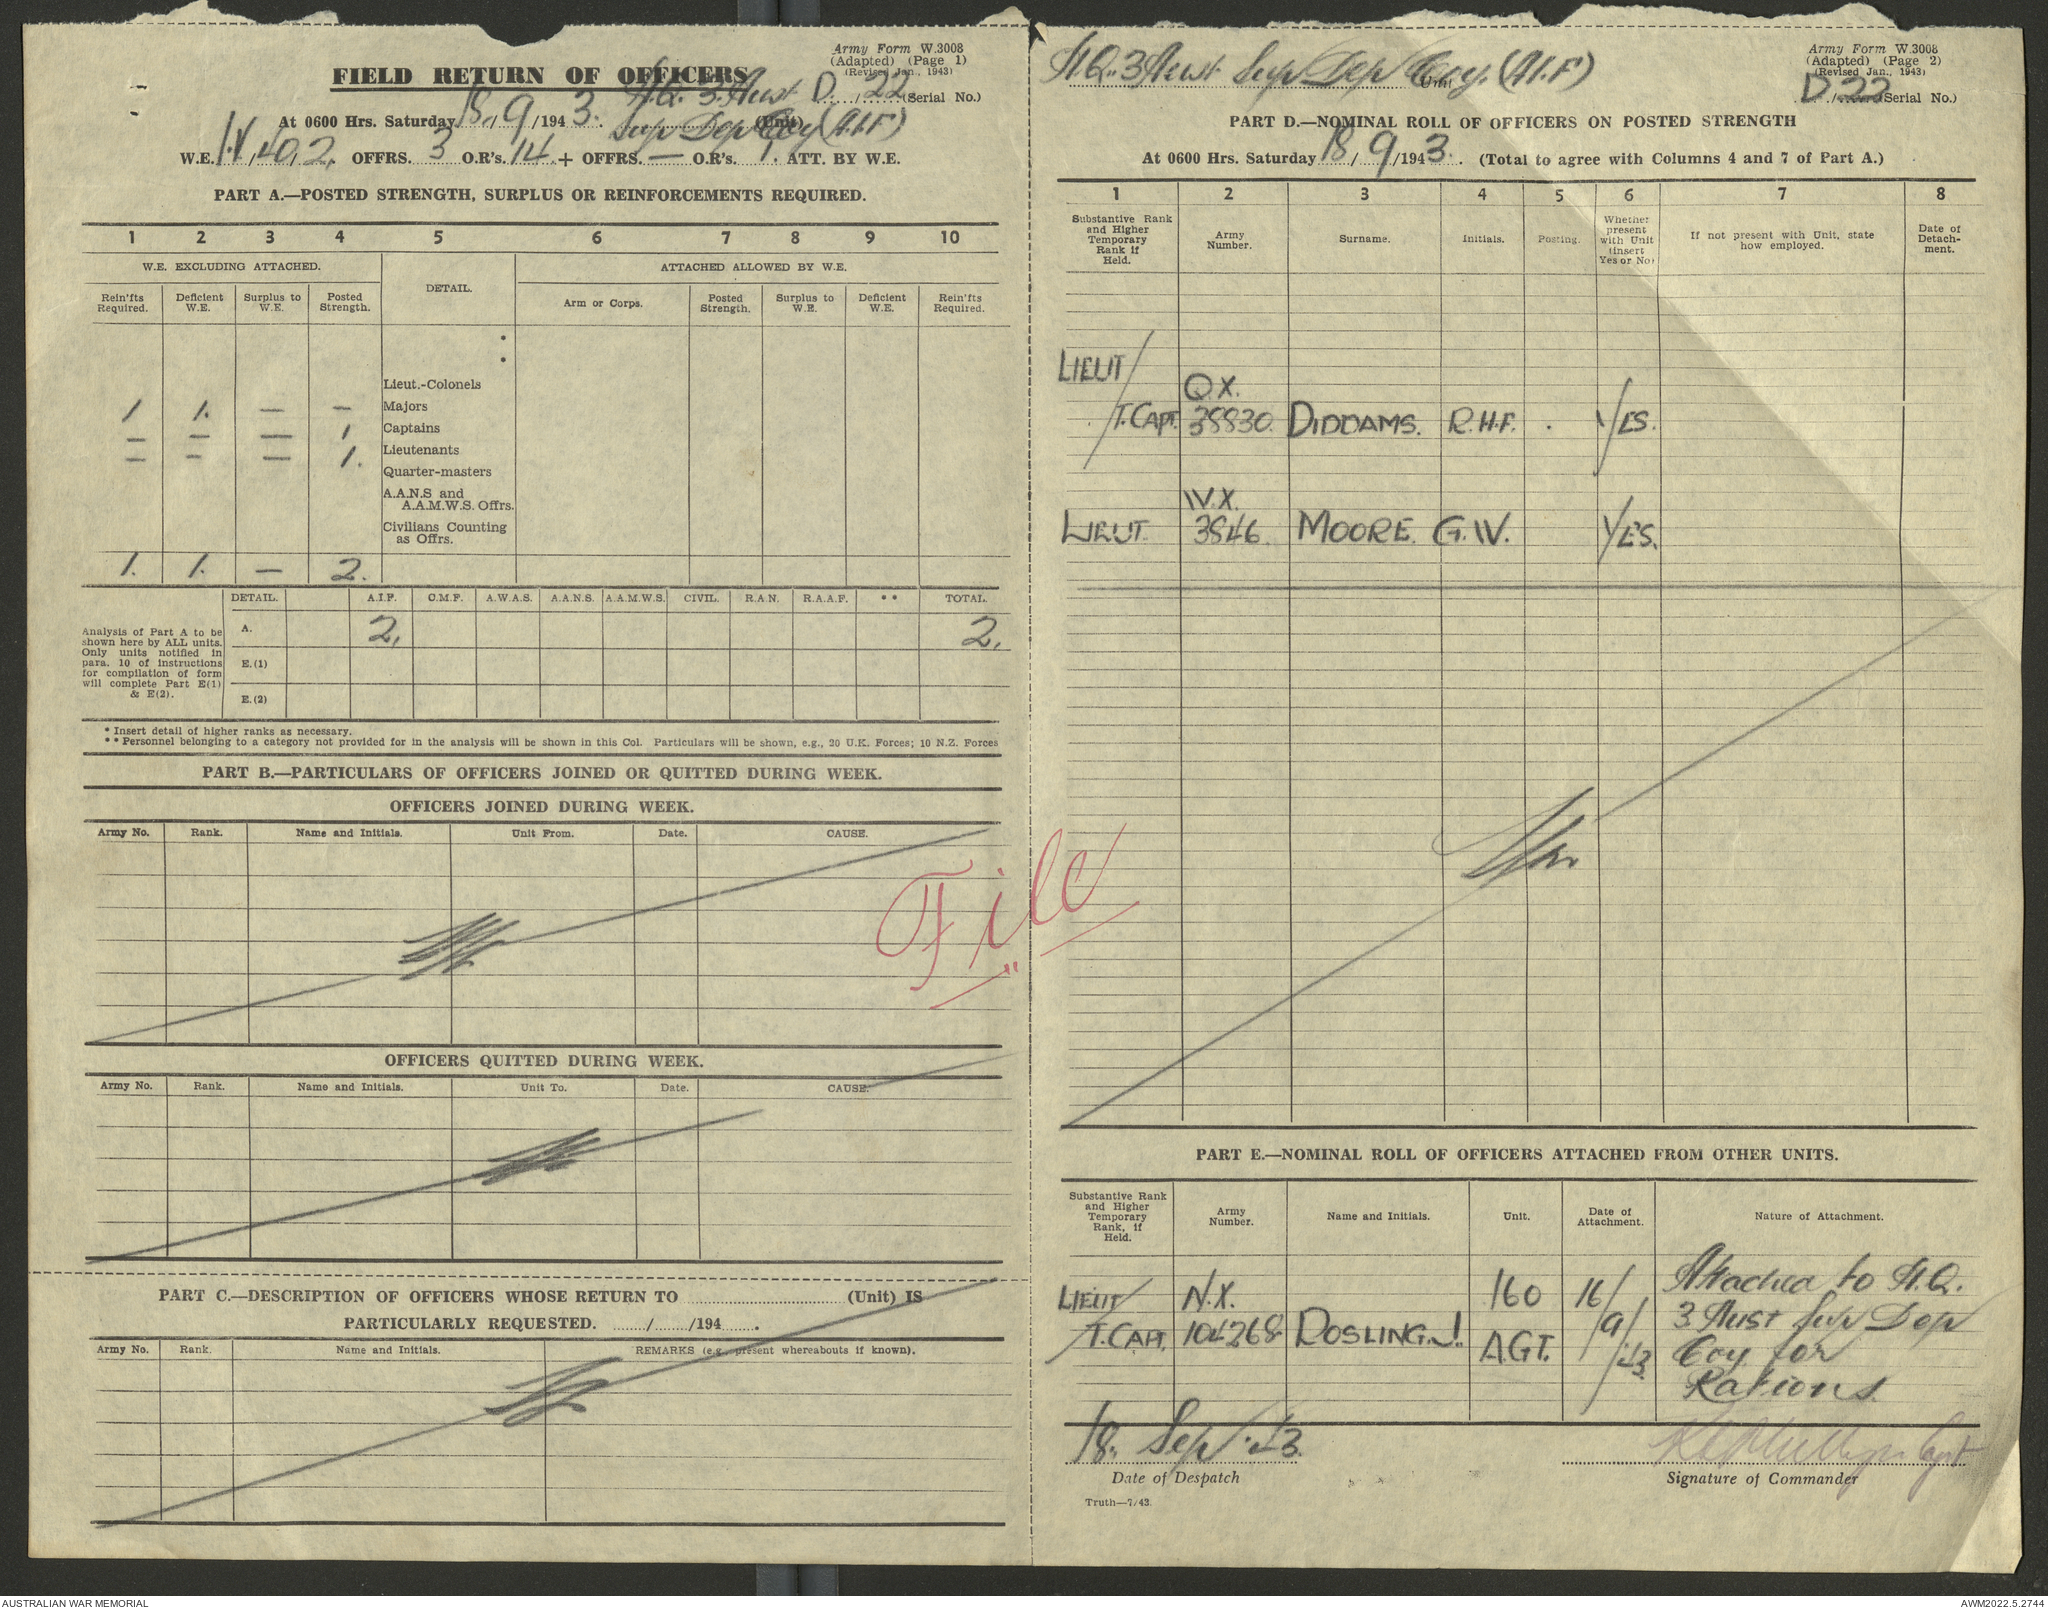 Army Form W.3008
(Adapted) (Page 1)
(Revised Jan., 1943)
FIELD RETURN OF OFFICERS
H.Q. 3 Aust D / 22 (Serial No.)
At 0600 Hrs. Saturday 18 / 9 /194 3. Sup Dep Coy (A.I.F) (Unit)
W.E. OFFRS. 3 O.R's. 14 + OFFRS. — O.R's. 1. ATT. BY W.E.
PART A.—POSTED STRENGTH, SURPLUS OR REINFORCEMENTS REQUIRED.
1 2 3 4 5 6 7 8 9 10
W.E. EXCLUDING ATTACHED. DETAIL. ATTACHED ALLOWED BY W.E.
Rein'fts Required. Deficient W.E. Surplus to W.E. Posted Strength. Arm or Corps. Posted Strength. Surplus to W.E. Deficient W.E. Rein'fts Required.
Lieut.-Colonels
1 1. — — Majors
— — — 1 Captains
— — — 1. Lieutenants
Quarter-masters
A.A.N.S and
A.A.M.W.S. Offrs.
Civilians Counting
as Offrs.
1. 1. — 2.
DETAIL. A.I.F. C.M.F. A.W.A.S. A.A.N.S. A.A.M.W.S. CIVIL. R.A.N. R.A.A.F. ** TOTAL.
Analysis of Part A to be
shown here by ALL units.
Only units notified in
para. 10 of instructions
for compilation of form
will complete Part E(1)
& E(2).
A. 2. 2.
E.(1)
E.(2)
* Insert detail of higher ranks as necessary.
** Personnel belonging to a category not provided for in the analysis will be shown in this Col. Particulars will be shown, e.g., 20 U.K. Forces; 10 N.Z. Forces
PART B.—PARTICULARS OF OFFICERS JOINED OR QUITTED DURING WEEK.
OFFICERS JOINED DURING WEEK.
Army No. Rank. Name and Initials. Unit From. Date. CAUSE.
File
OFFICERS QUITTED DURING WEEK.
Army No. Rank. Name and Initials. Unit To. Date. CAUSE.
PART C.—DESCRIPTION OF OFFICERS WHOSE RETURN TO (Unit) IS
PARTICULARLY REQUESTED. / /194 .
Army No. Rank. Name and Initials. REMARKS (e.g., present whereabouts if known).
Army Form W.3008
(Adapted) (Page 2)
(Revised Jan., 1943)
H.Q. 3 Aust Sup Dep Coy. (A.I.F) Unit
D / 22 (Serial No.)
PART D.—NOMINAL ROLL OF OFFICERS ON POSTED STRENGTH
At 0600 Hrs. Saturday 18 / 9 /194 3. (Total to agree with Columns 4 and 7 of Part A.)
1 2 3 4 5 6 7 8
Substantive Rank and Higher Temporary Rank if Held. Army Number. Surname. Initials. Posting. Whether present with Unit (insert Yes or No) If not present with Unit, state how employed. Date of Detachment.
LIEUT/
QX.
T.CAPT. 38830. DIDDAMS. R.H.F. YES.
W.X.
LIEUT. 3846. MOORE. G.W. YES.
PART E.—NOMINAL ROLL OF OFFICERS ATTACHED FROM OTHER UNITS.
Substantive Rank and Higher Temporary Rank, if Held. Army Number. Name and Initials. Unit. Date of Attachment. Nature of Attachment.
LIEUT/ N.X. 160 16/ Attached to H.Q.
T.CAPT. 104268 DOSLING.J. A.G.T. 9/ 3 Aust Sup Dep
43. Coy for
Rations.
18. Sep. 43.
Date of Despatch
Capt
Signature of Commander
Truth—7/43.
AUSTRALIAN WAR MEMORIAL
AWM2022.5.2744